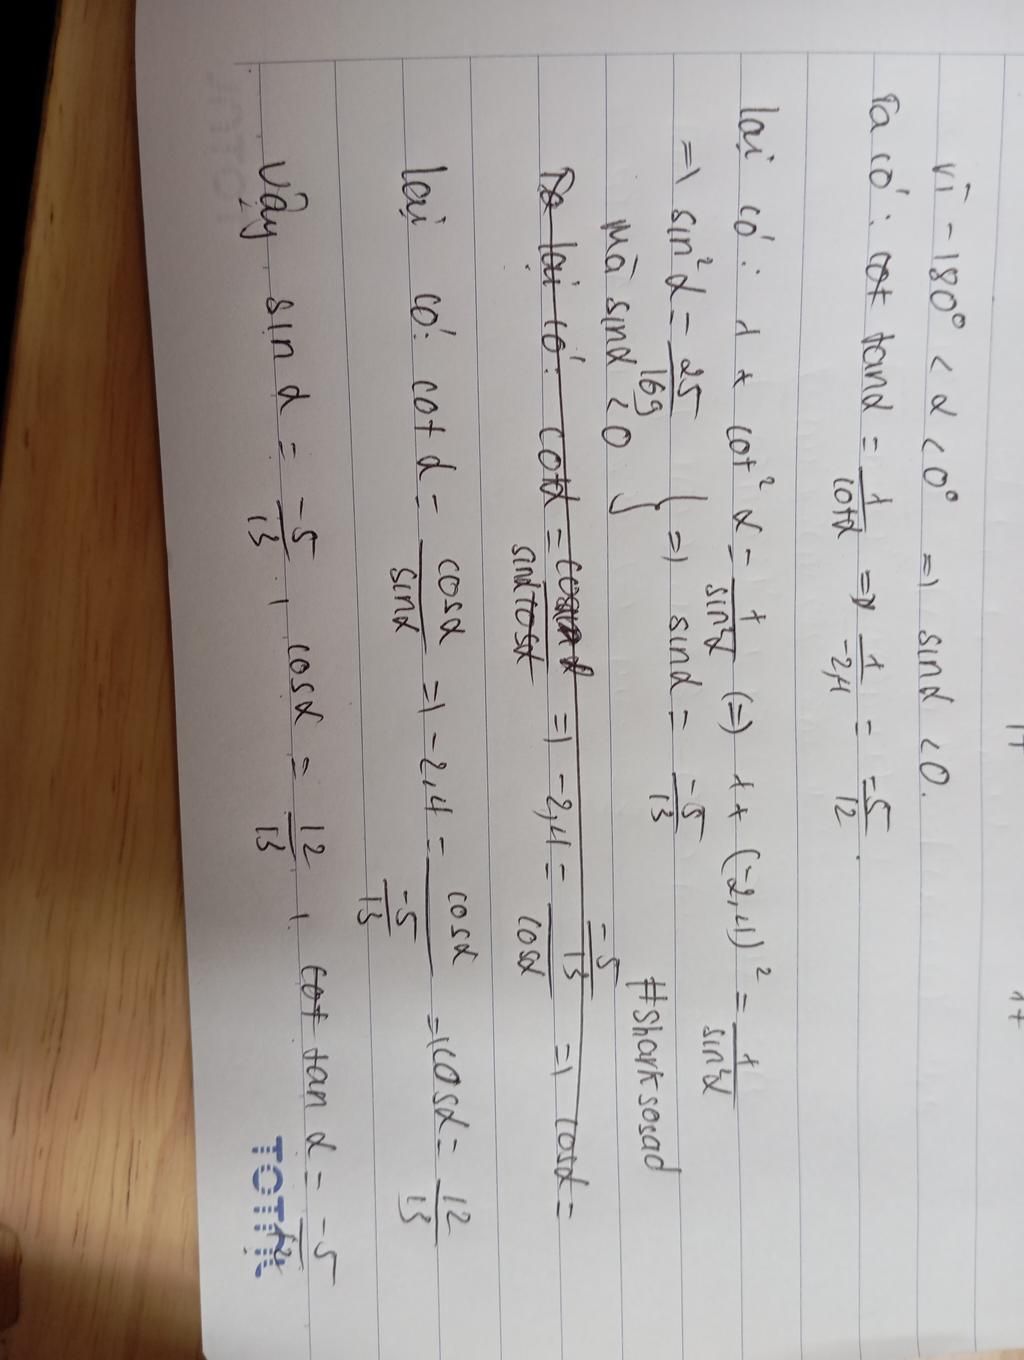 Vì -180° < α < 0° => sinα < 0.
Ta có: cot tanα = 1/cotα => 1/-2,4 = -5/12.
lại có: 1 + cot²α = 1/sin²α (=) 1 + (-2,4)² = 1/sin²α
=> sin²α = 25/169 } => sinα = -5/13
Mà sinα < 0 #sharksosad
Ta lại có: cotα = sinα/cosα => -2,4 = -5/13/cosα => cosα =
lại có: cot α = cosα/sinα => -2,4 = cosα/-5/13 => cosα = 12/13
Vậy sin α = -5/13, cosα = 12/13, cot tan α = -5/12
TOTTK